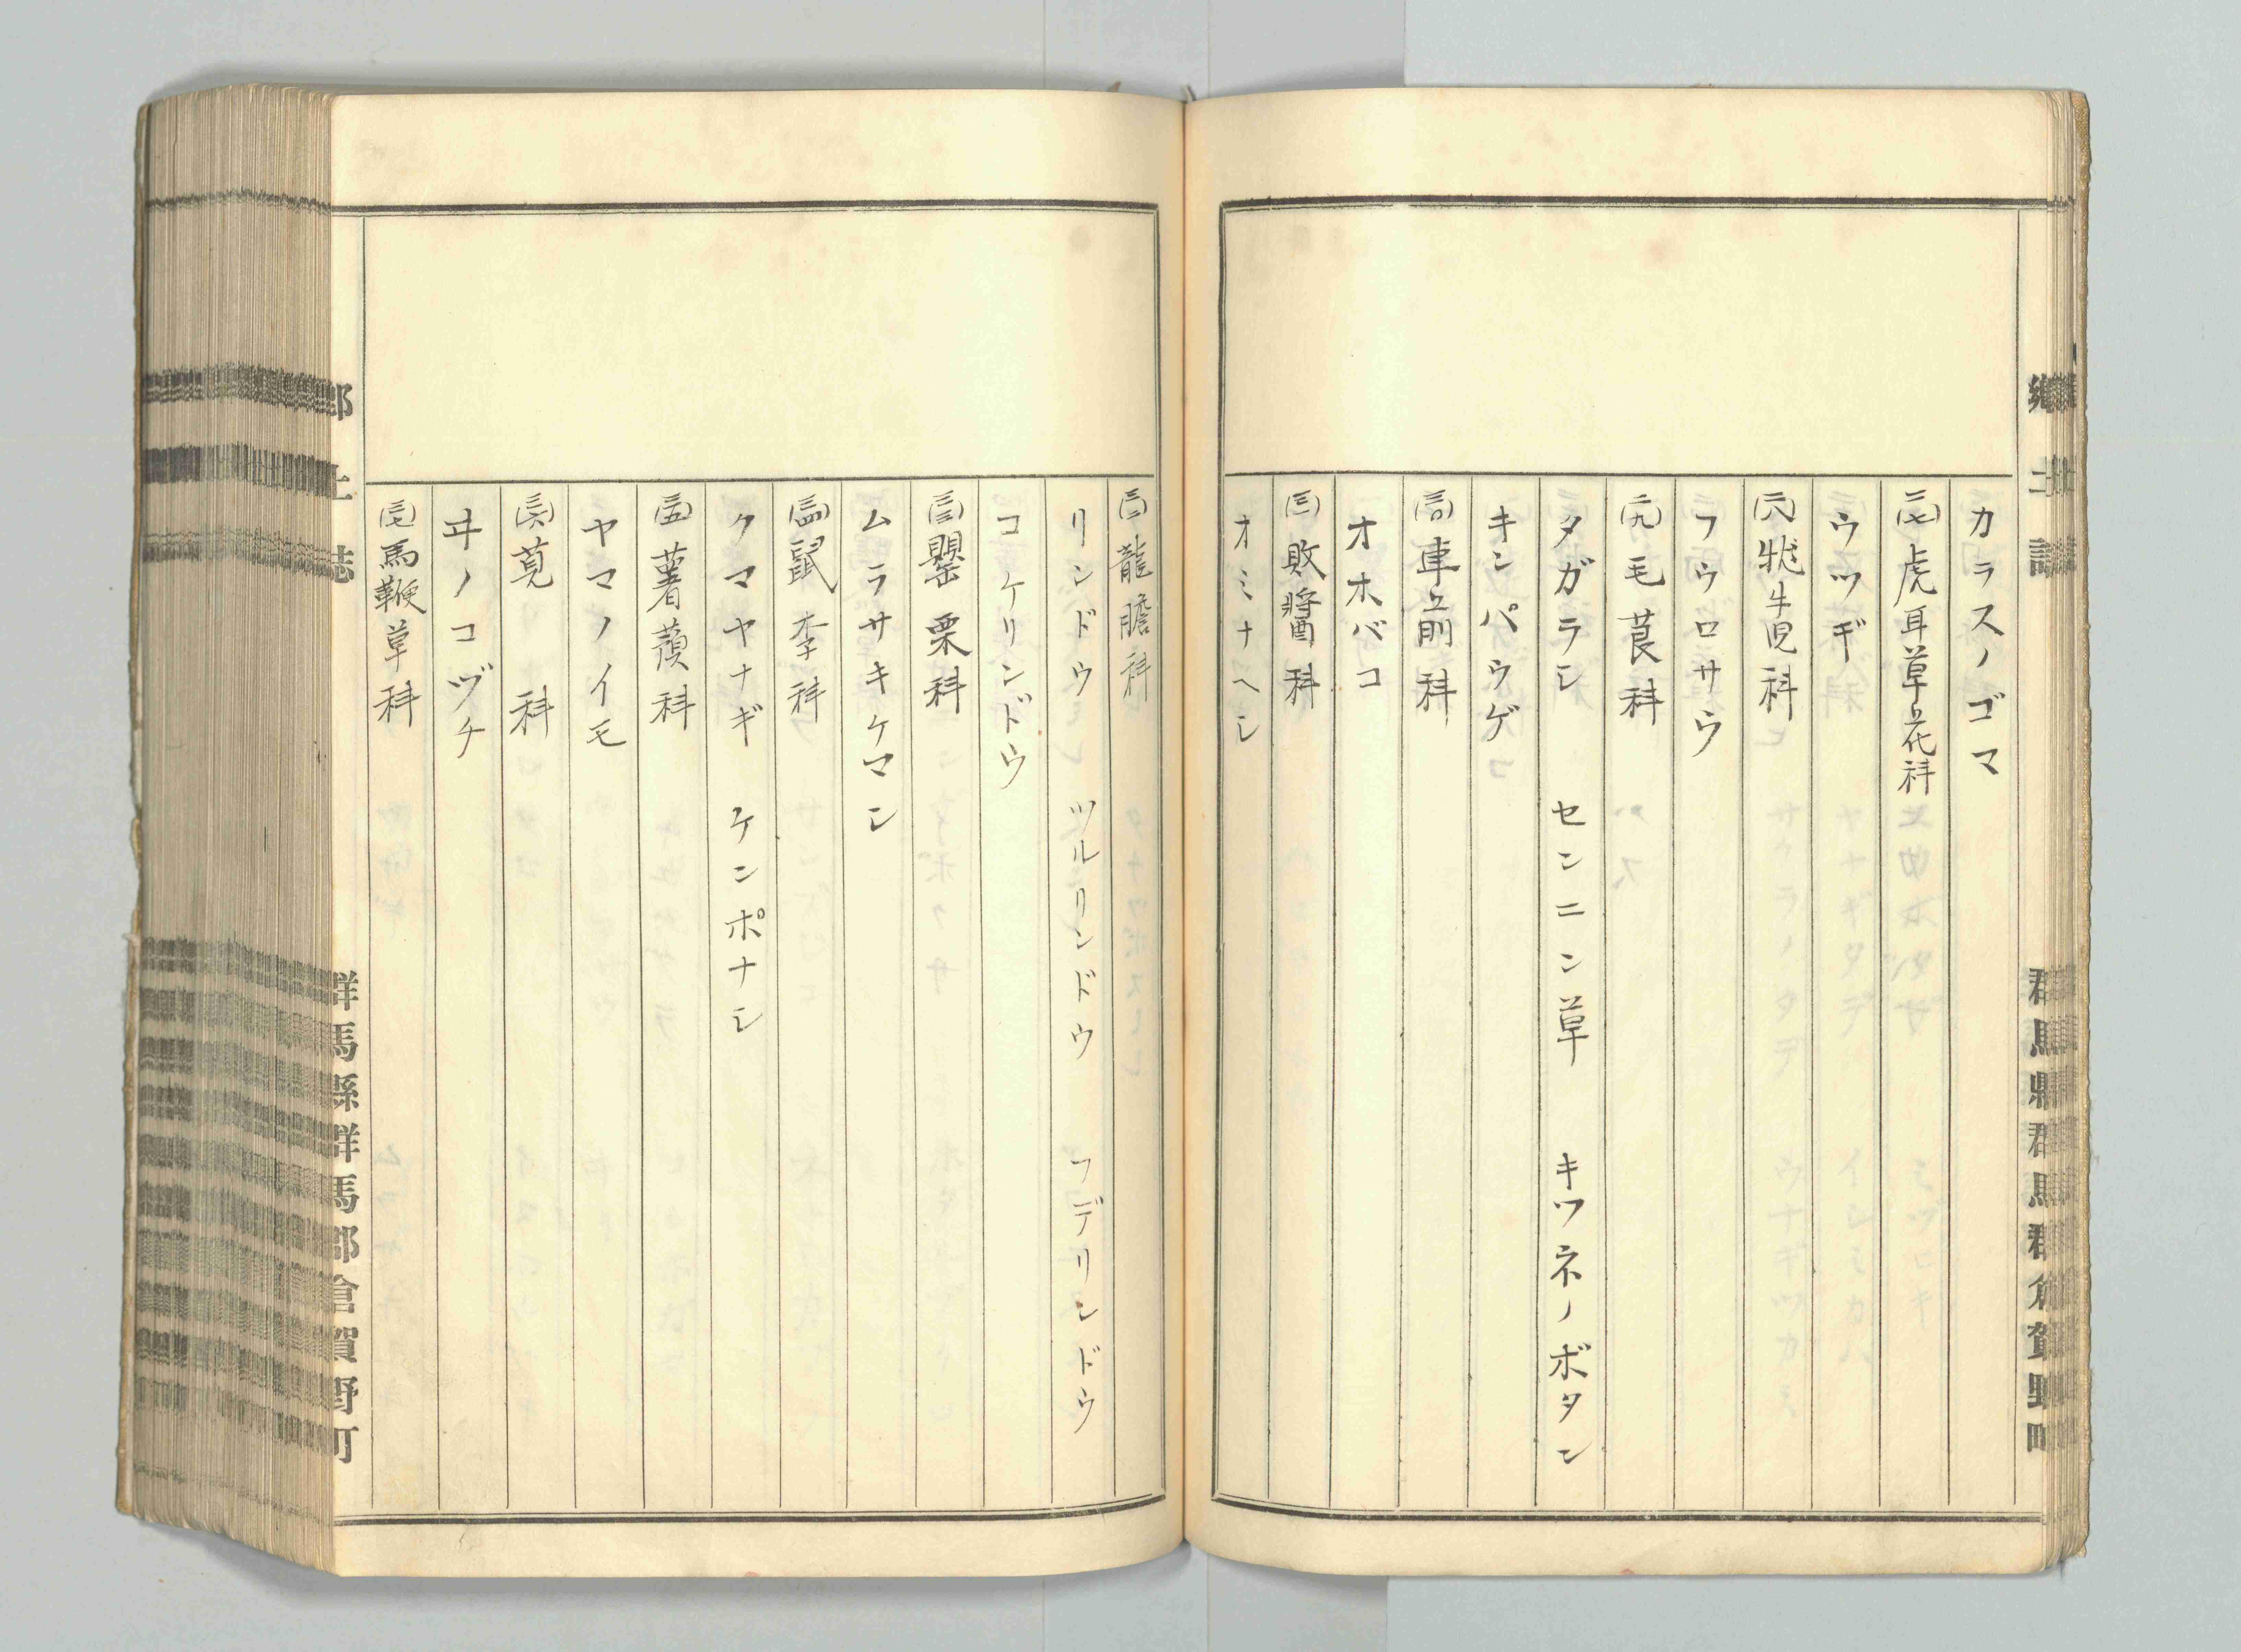 郷土誌
群馬縣群馬郡倉賀野町
カラスノゴマ
(二七)虎耳草花科
ウツギ
(二八)牻牛児科
フウロサウ
(二九)毛莨科
タガラシ　センニン草　キツネノボタン
キンパウゲ
(三〇)車前科
オホバコ
(三一)敗醤科
オミナヘシ
(三二)龍膽科
リンドウ　ツルリンドウ　フデリンドウ
コケリンドウ
(三三)罌栗科
ムラサキケマン
(三四)鼠李科
クマヤナギ　ケンポナシ
(三五)薯蕷科
ヤマノイモ
(三六)莧科
ヰノコヅチ
(三七)馬鞭草科
郷土誌
群馬縣群馬郡倉賀野町